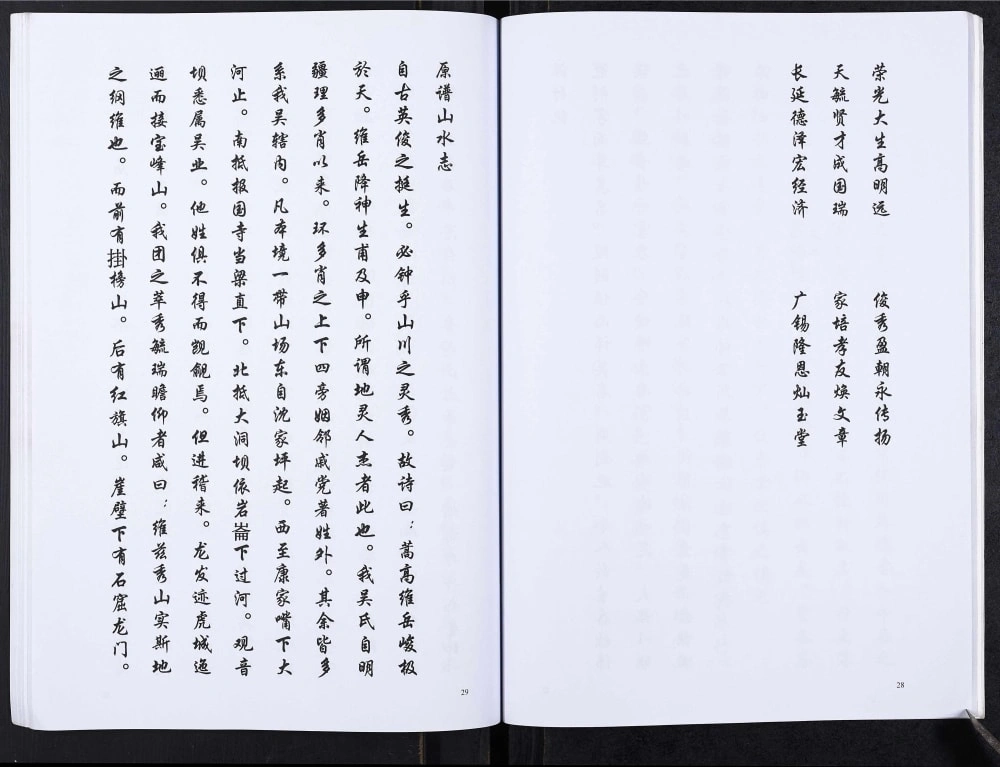 荣光大生高明远　俊秀盈朝永传扬
天毓贤才成国瑞　家培孝友焕文章
长延德泽宏经济　广锡隆恩灿玉堂
28
原谱山水志
自古英俊之挺生。必钟乎山川之灵秀。故诗曰：蒿高维岳峻极
於天。维岳降神生甫及申。所谓地灵人杰者此也。我吴氏自明
疆理多肖以来。环多肖之上下四旁姻邻戚党著姓外。其余皆多
系我吴辖内。凡本境一带山场东自沈家坪起。西至康家嘴下大
河止。南抵报国寺当梁直下。北抵大洞坝依岩崙下过河。观音
坝悉属吴业。他姓俱不得而觊觎焉。但进稽来。龙发迹虎城逶
逦而接宝峰山。我团之萃秀毓瑞瞻仰者咸曰：维兹秀山实斯地
之纲维也。而前有掛榜山。后有红旗山。崖壁下有石窟龙门。
29